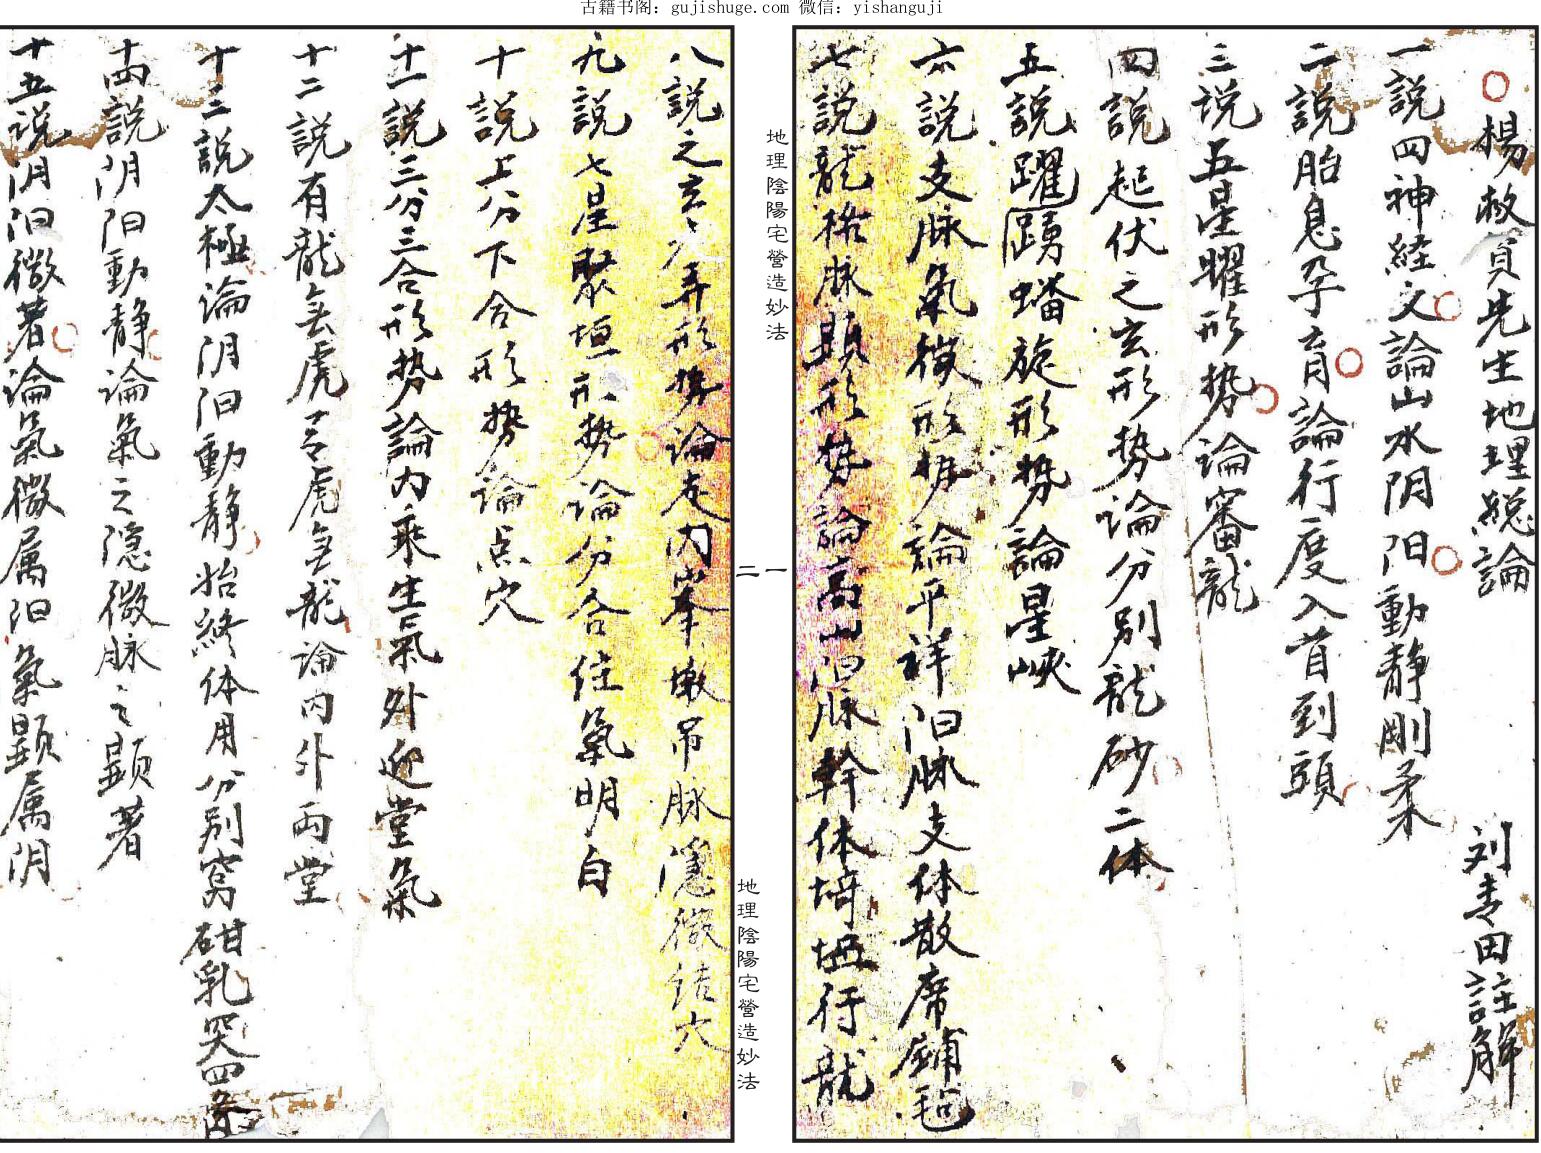 古籍书阁：gujishuge.com 微信：yishanguji
楊救貧先生地理総論 刘青田註解
一説四神経文論山水阴阳動静剛柔
二説胎息孕育論行度入首到頭
三说五星曜形势論審龍
四説起伏之玄形势論分别龍砂二体
五説躍踴蟠旋形势論星峽
六説支脉氣微形势論平祥阳脉支体散席鋪毡
七説龍格脉顕形势論高山阳脉幹体行龍
地理陰陽宅營造妙法
一
二
地理陰陽宅營造妙法
八説之玄弄形势論走内峯墩吊脉隱微结穴
九説七星聚垣形势論分合住氣明白
十説上分下合形势論点穴
十一説三分三合形势論内乘生氣外迎堂氣
十二説有龍無虎有虎無龍論内外両堂
十三説太極論阴阳動静始終体用分别窩鉗乳突四
十四説阴阳動静論氣之隱微脉之顕著
十五说阴阳微著論氣微属阳氣顕属阴